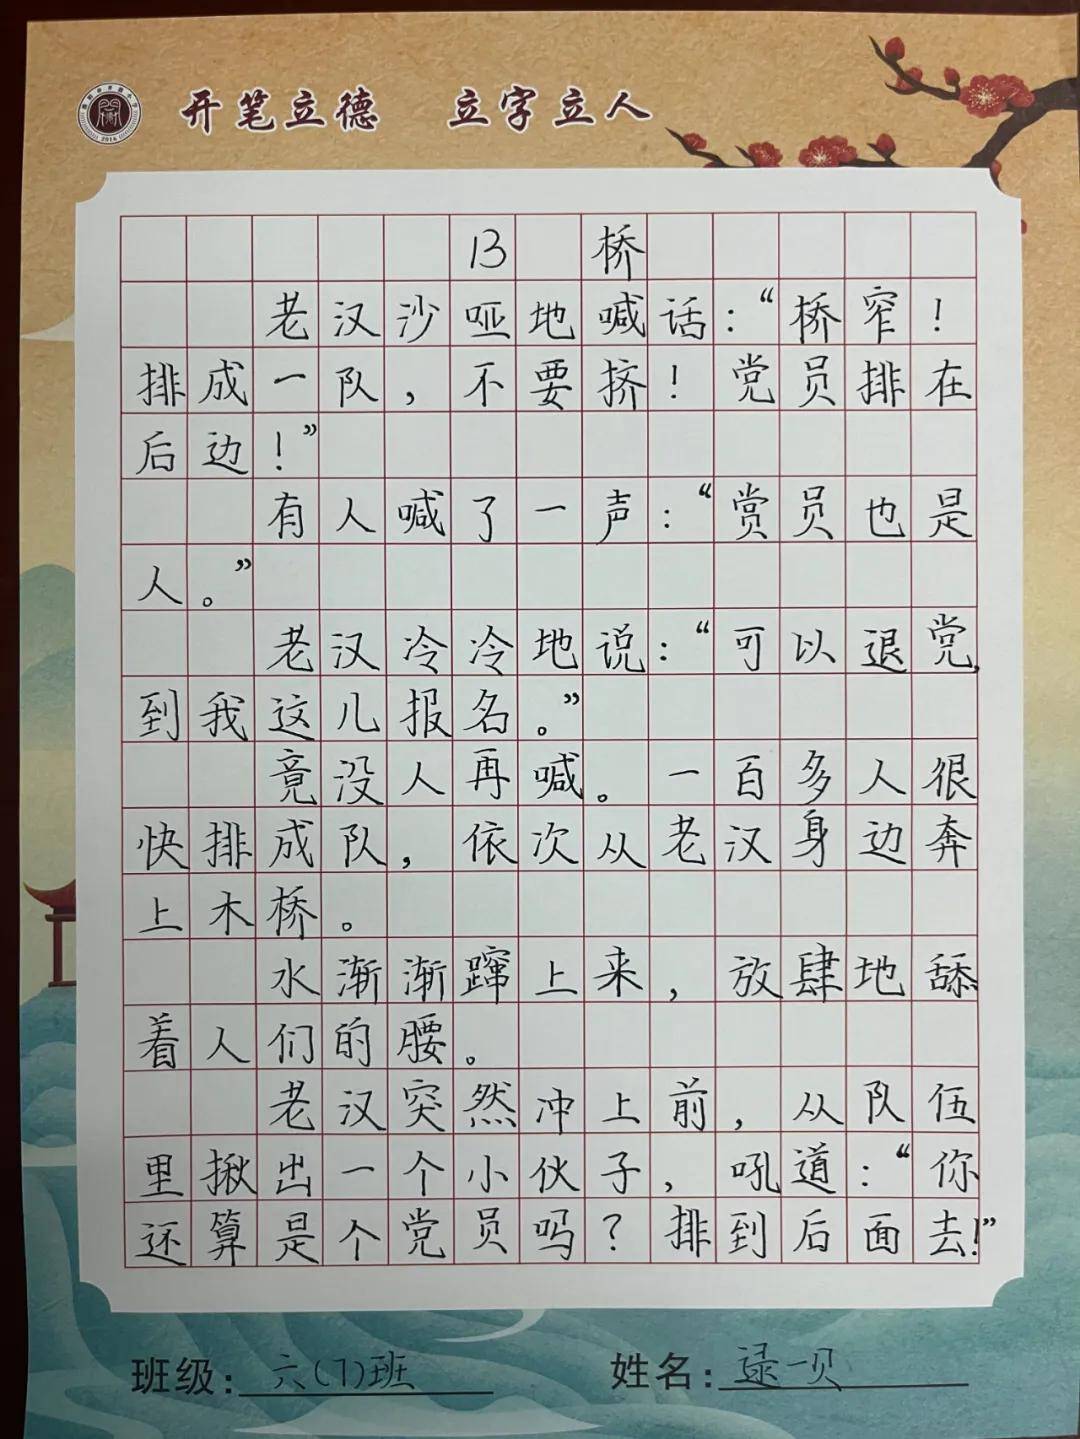 开笔立德 立字立人
13 桥
老汉沙哑地喊话：“桥窄！
排成一队，不要挤！党员排在
后边！”
有人喊了一声：“赏员也是
人。”
老汉冷冷地说：“可以退党，
到我这儿报名。”
竟没人再喊。一百多人很
快排成队，依次从老汉身边奔
上木桥。
水渐渐蹿上来，放肆地舔
着人们的腰。
老汉突然冲上前，从队伍
里揪出一个小伙子，吼道：“你
还算是个党员吗？排到后面去！”
班级：六(7)班 姓名：逯一贝